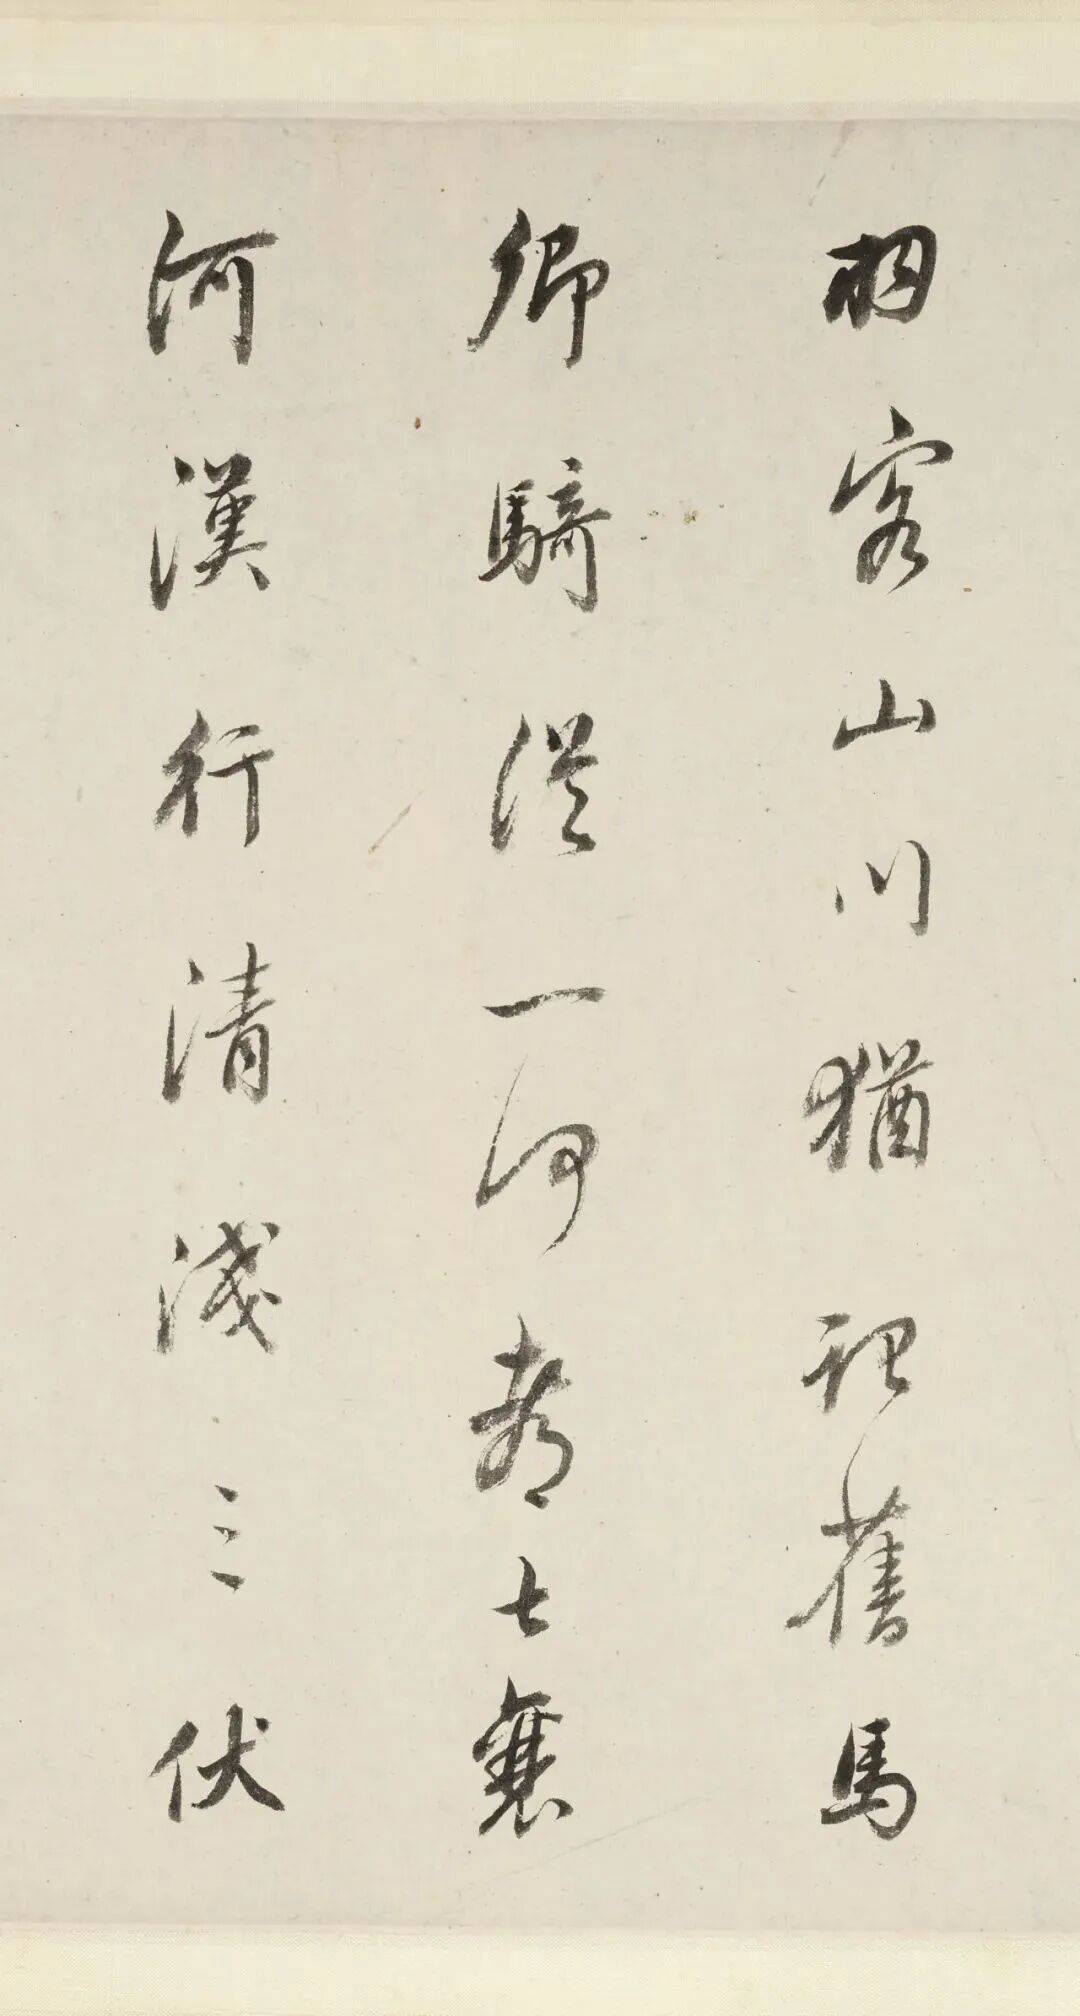 羽客山川猶記舊馬
卿騎從一何都七襄
河漢行清淺三伏